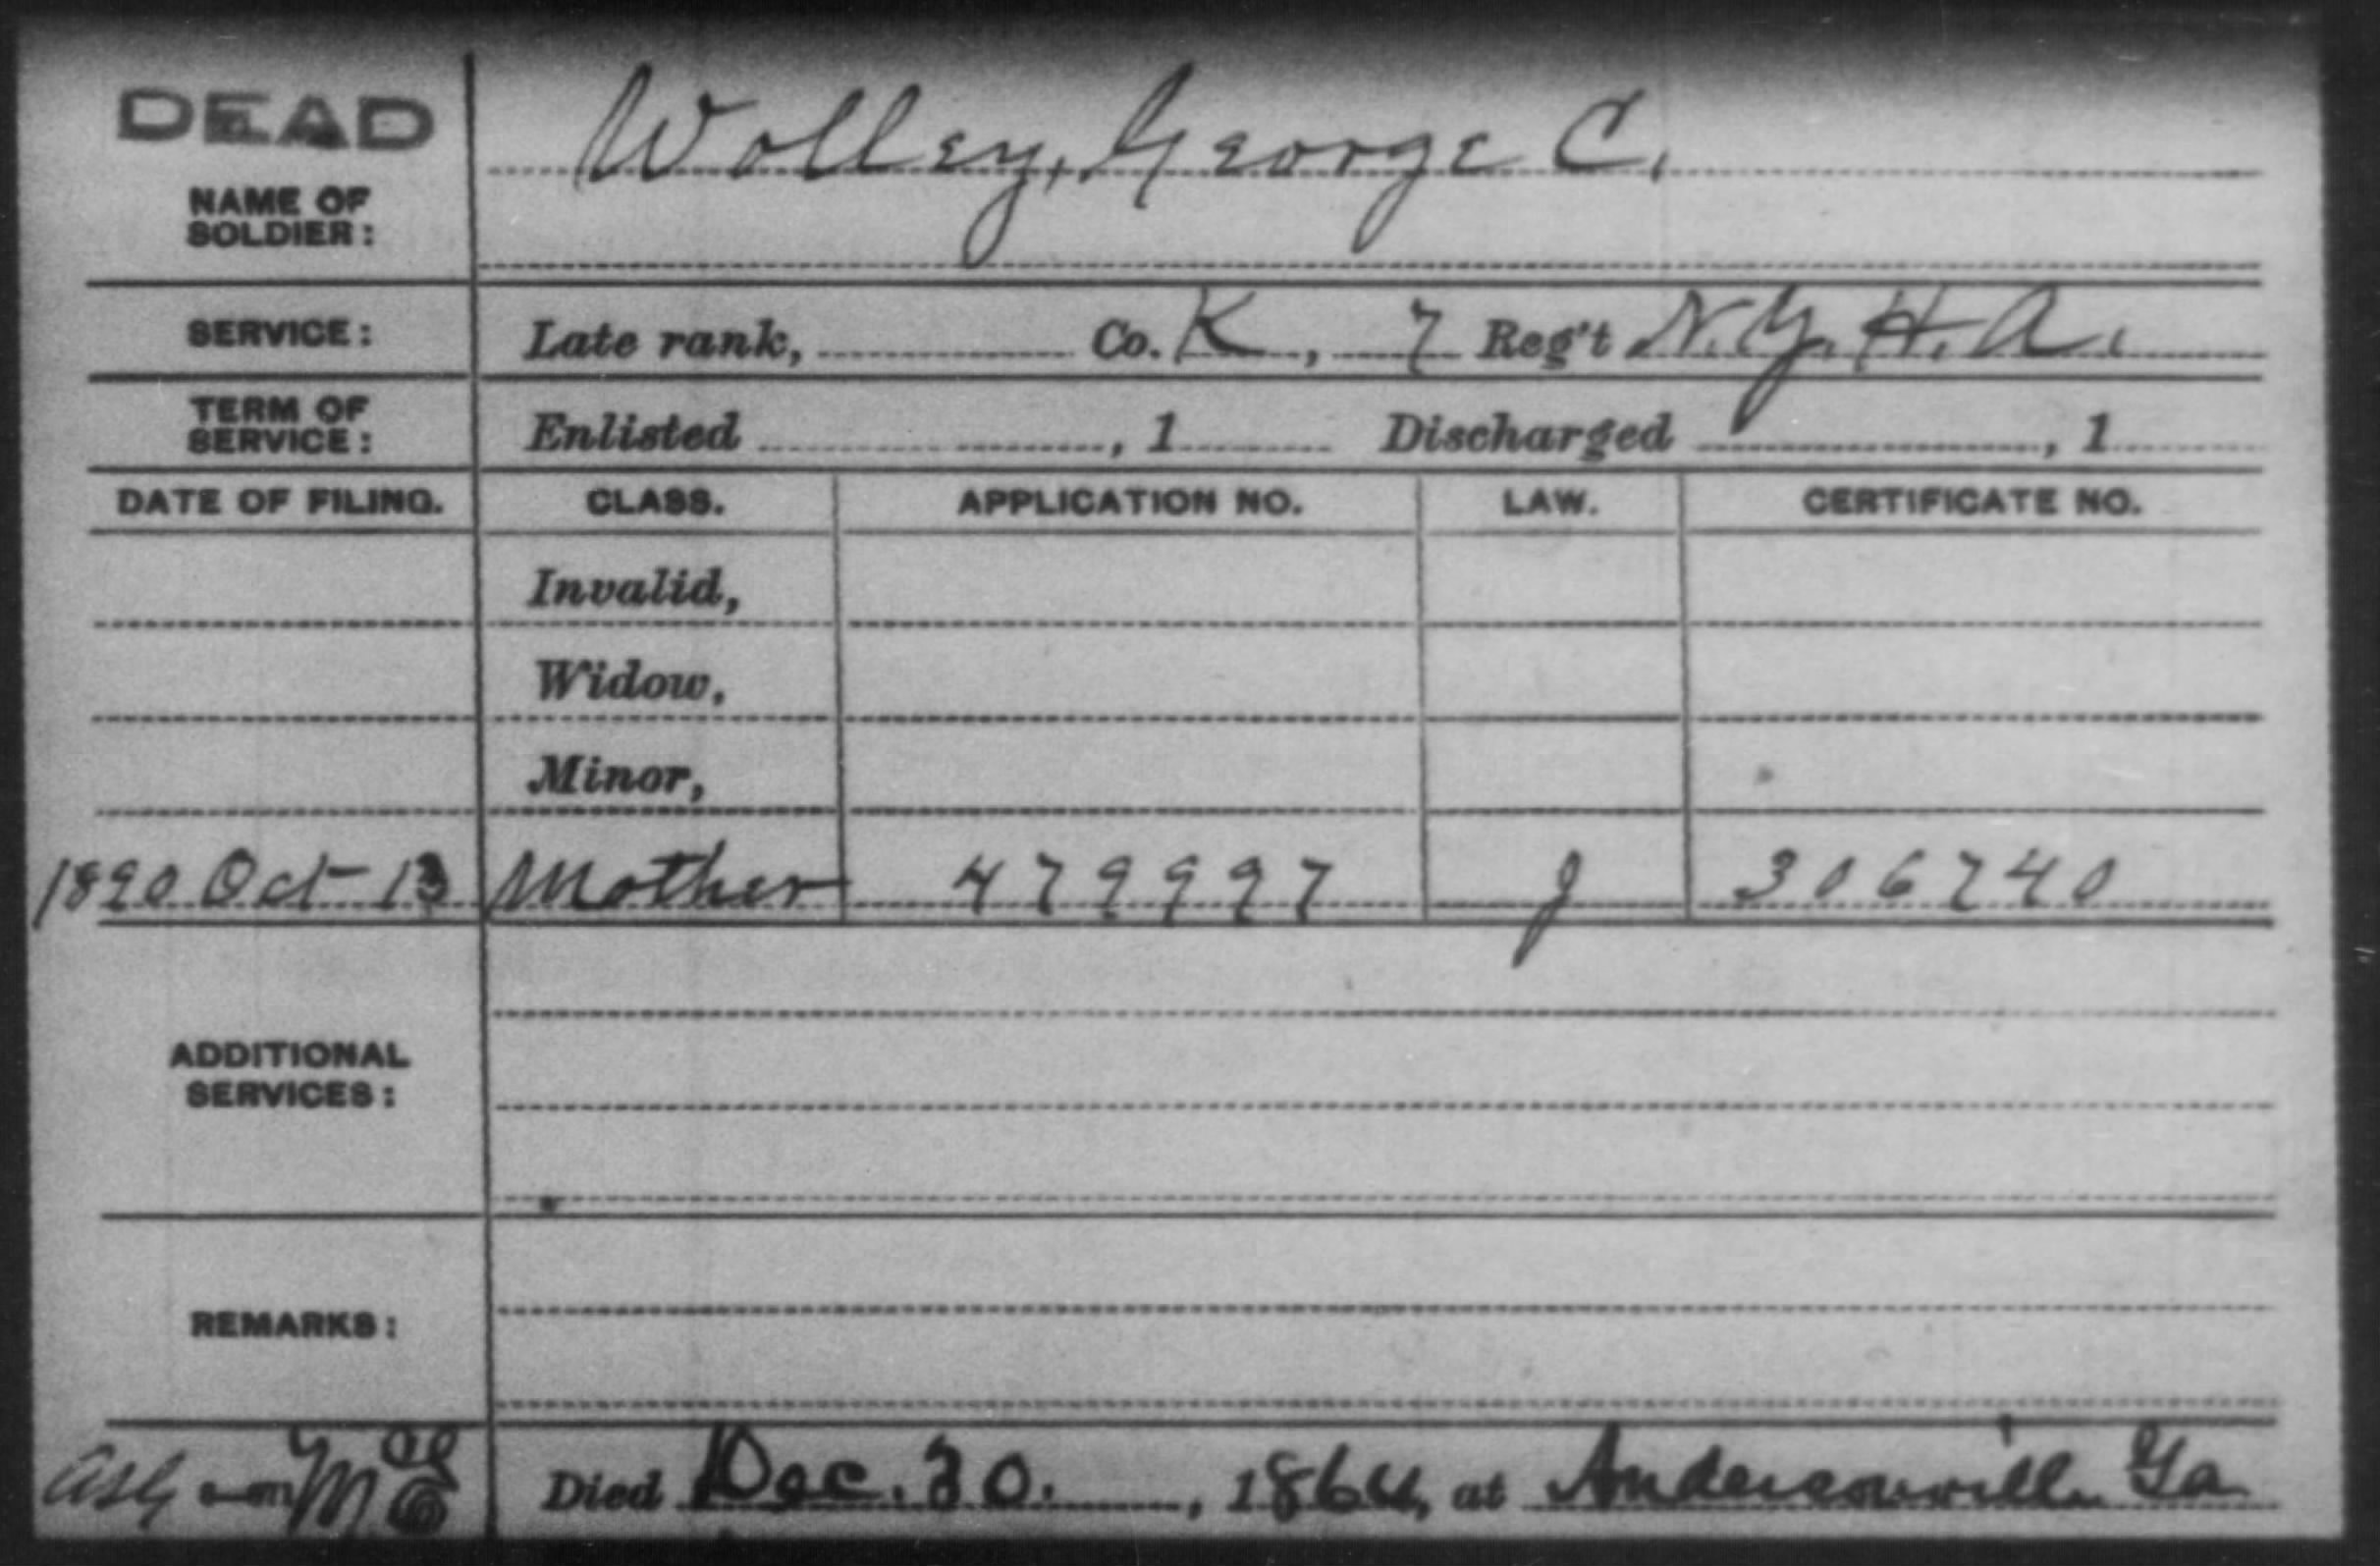 DEAD
Wolley, George C.
NAME OF
SOLDIER:
SERVICE: Late rank, Co. K, 7 Reg't N.Y. H. A.
TERM OF
SERVICE: Enlisted , 1 Discharged , 1
DATE OF FILING. CLASS. APPLICATION NO. LAW. CERTIFICATE NO.
Invalid,
Widow,
Minor,
1890 Oct 13 Mother 479997 J 306740
ADDITIONAL
SERVICES:
REMARKS:
Died Dec. 30. , 1864, at Andersonville Ga